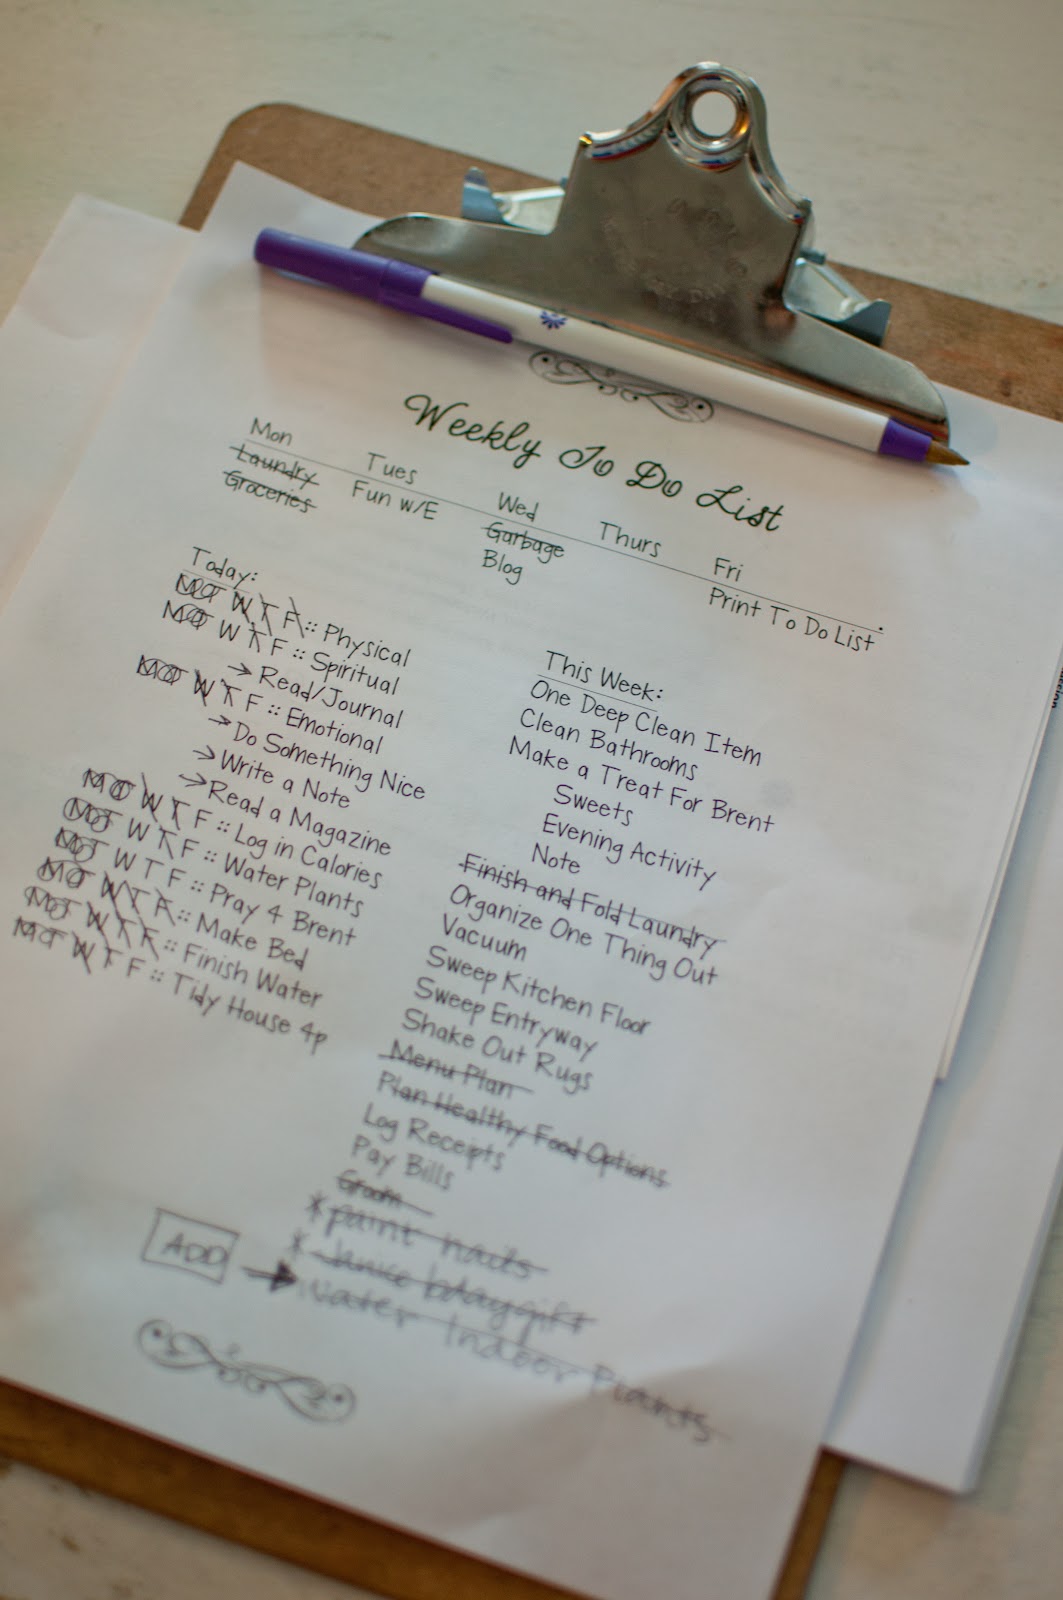 Weekly To Do List
Mon Tues Wed Thurs Fri
Laundry Fun w/E Garbage Print To Do List
Groceries Blog
Today:
M T W T F :: Physical
M T W T F :: Spiritual
→ Read/Journal
M T W T F :: Emotional
→ Do Something Nice
→ Write a Note
→ Read a Magazine
M T W T F :: Log in Calories
M T W T F :: Water Plants
M T W T F :: Pray 4 Brent
M T W T F :: Make Bed
M T W T F :: Finish Water
M T W T F :: Tidy House 4p
This Week:
One Deep Clean Item
Clean Bathrooms
Make a Treat For Brent
Sweets
Evening Activity
Note
Finish and Fold Laundry
Organize One Thing Out
Vacuum
Sweep Kitchen Floor
Sweep Entryway
Shake Out Rugs
Menu Plan
Plan Healthy Food Options
Log Receipts
Pay Bills
Groom
* paint nails
* bday gift
ADD → Water Indoor Plants